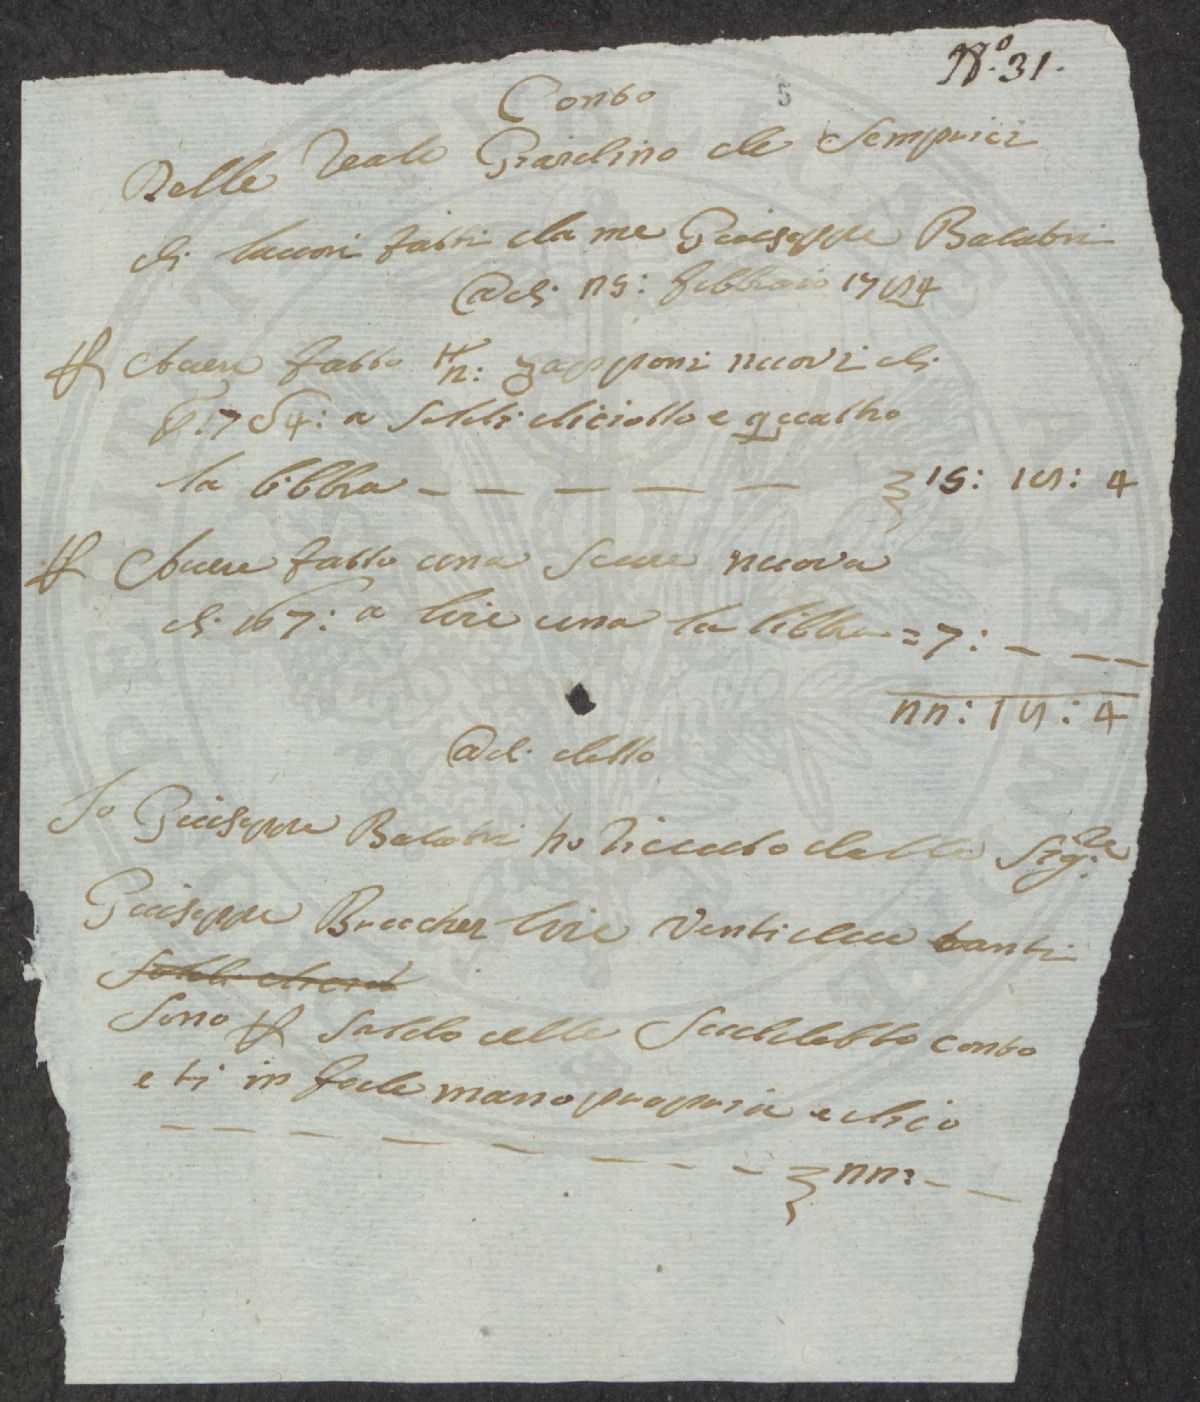 Nº. 31.
5
Conto
Delle Reale Giardino de Semprici
di lauori fatti da me Giuiseppe Balatri
Adi 25: febbraio 1754
Auere fatto n: 2 zapponi nuovi di
a Soldi diciotto e quattro
la libbra — — — — — 15: 15: 4
Auere fatto una Scure nuova
di lb 7: a lire una la libbra = 7: — —
22: 15: 4
Adi detto
Io Giuiseppe Balatri ho riceuto dalle Sig:re
Giuiseppe Bruccher lire Venti due tanti
Sono Saldo delle Suddetto conto
e ti in fede mano propria e dico
— — — — — — — — 22: — —